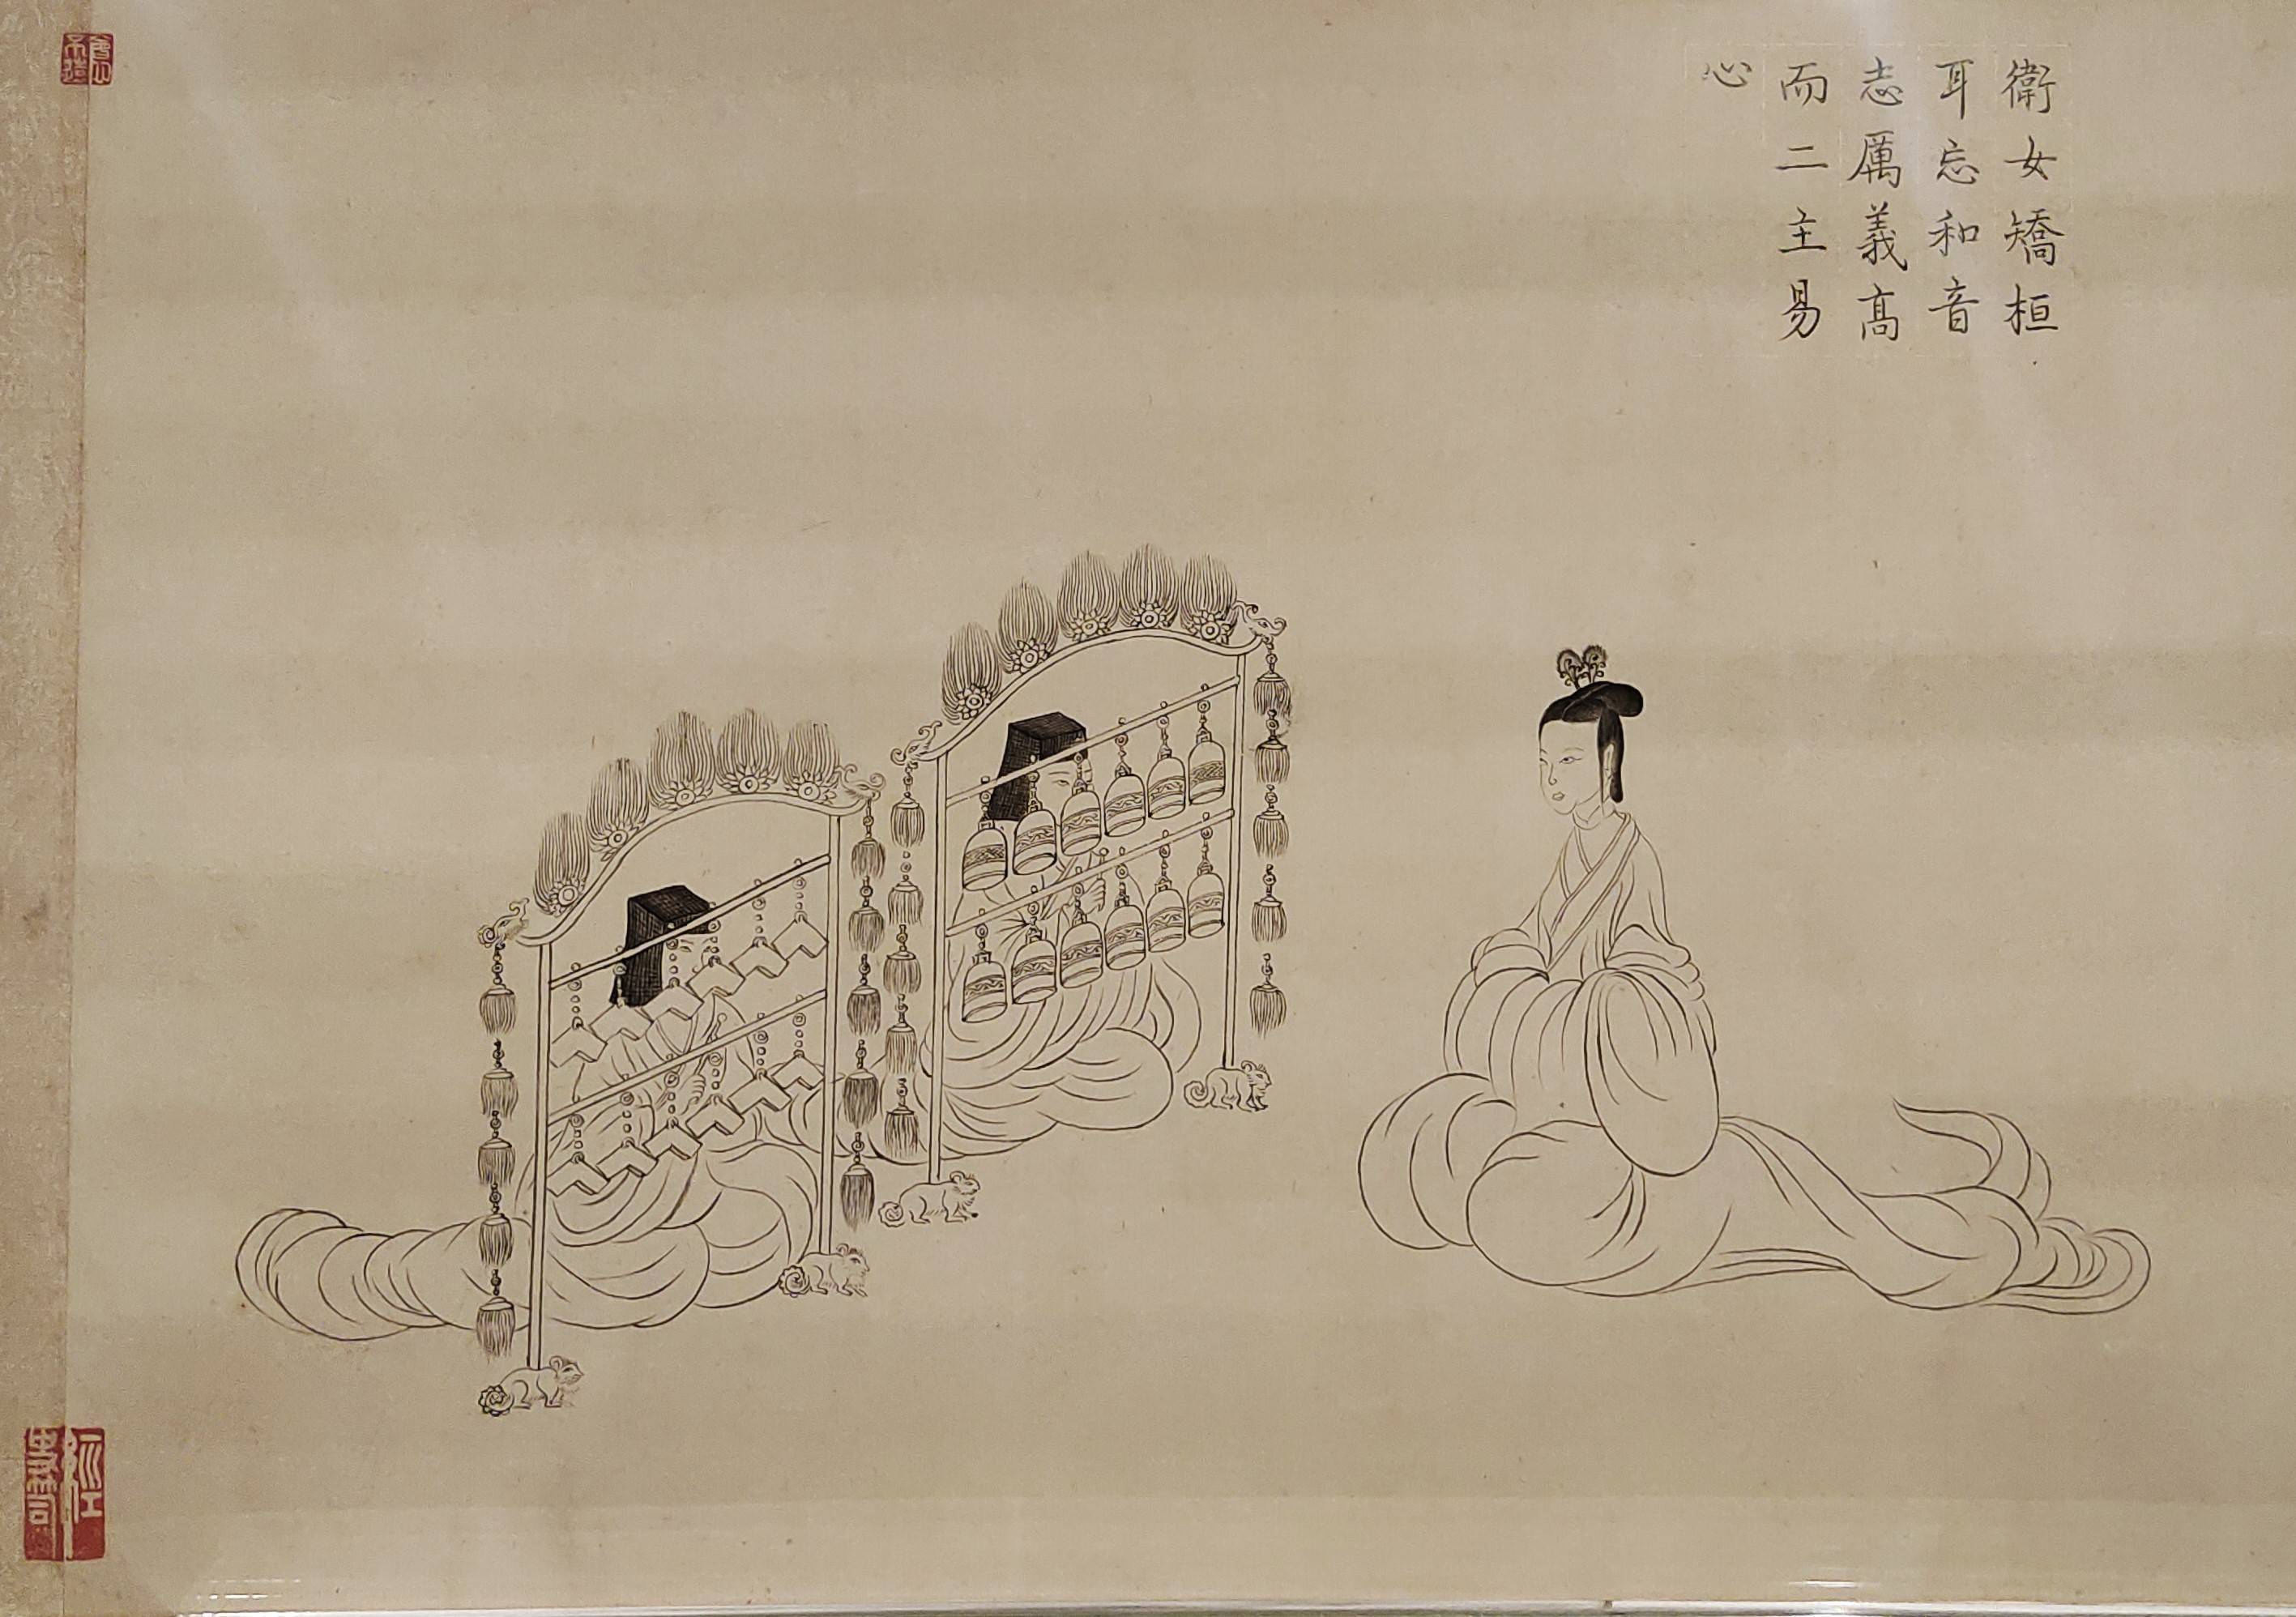 衛女矯桓
耳忘和音
志厲義高
而二主易
心